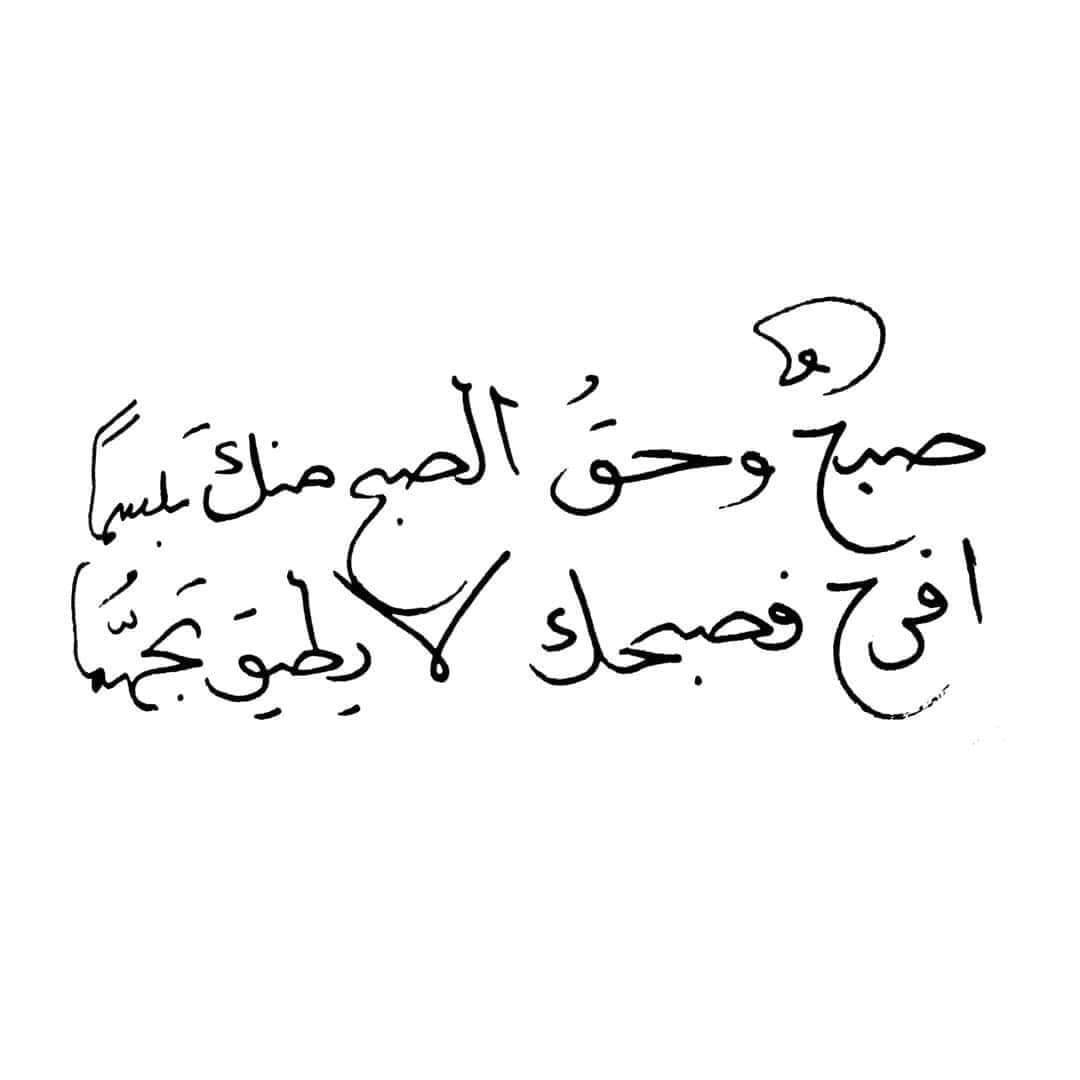 صبح وحقُ الصبح منكَ تبسماً
افرح فصبحك لا يطيقَ تجهّمَا